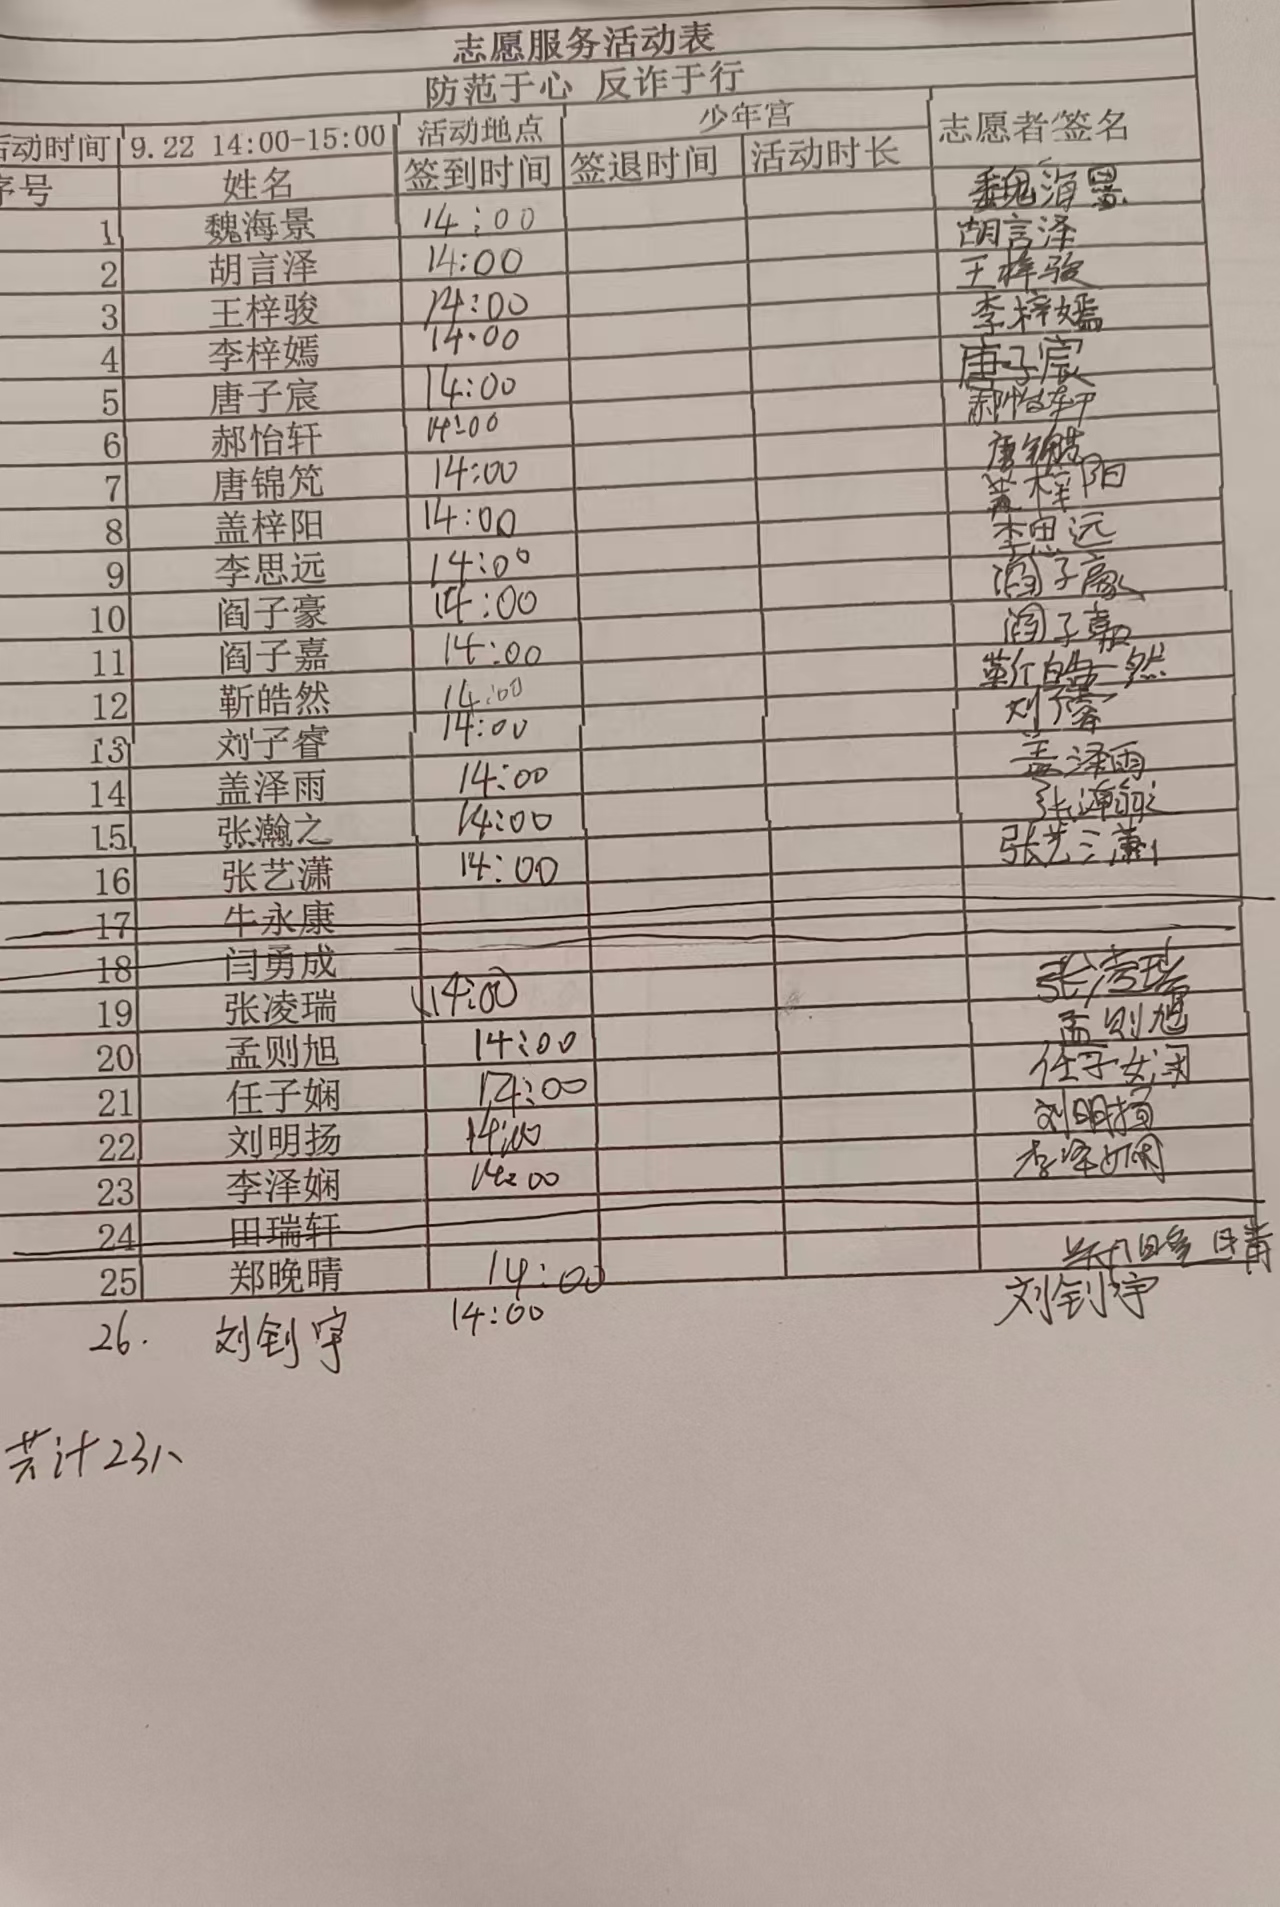 志愿服务活动表
防范于心 反诈于行
活动时间 9.22 14:00-15:00 活动地点 少年宫 志愿者签名
序号 姓名 签到时间 签退时间 活动时长
1 魏海景 14:00 魏海景
2 胡言泽 14:00 胡言泽
3 王梓骏 14:00 王梓骏
4 李梓嫣 14:00 李梓嫣
5 唐子宸 14:00 唐子宸
6 郝怡轩 14:00 郝怡轩
7 唐锦竼 14:00 唐锦
8 盖梓阳 14:00 盖梓阳
9 李思远 14:00 李思远
10 阎子豪 14:00 阎子豪
11 阎子嘉 14:00 阎子嘉
12 靳皓然 14:00 靳皓然
13 刘子睿 14:00 刘子睿
14 盖泽雨 14:00 盖泽雨
15 张瀚之 14:00 张瀚之
16 张艺潇 14:00 张艺潇
17 牛永康
18 闫勇成
19 张凌瑞 14:00 张凌瑞
20 孟则旭 14:00 孟则旭
21 任子娴 14:00 任子娴
22 刘明扬 14:00 刘明扬
23 李泽娴 14:00 李泽娴
24 田瑞轩
25 郑晚晴 14:00 郑晚晴
26. 刘钊宇 14:00 刘钊宇
共计23人